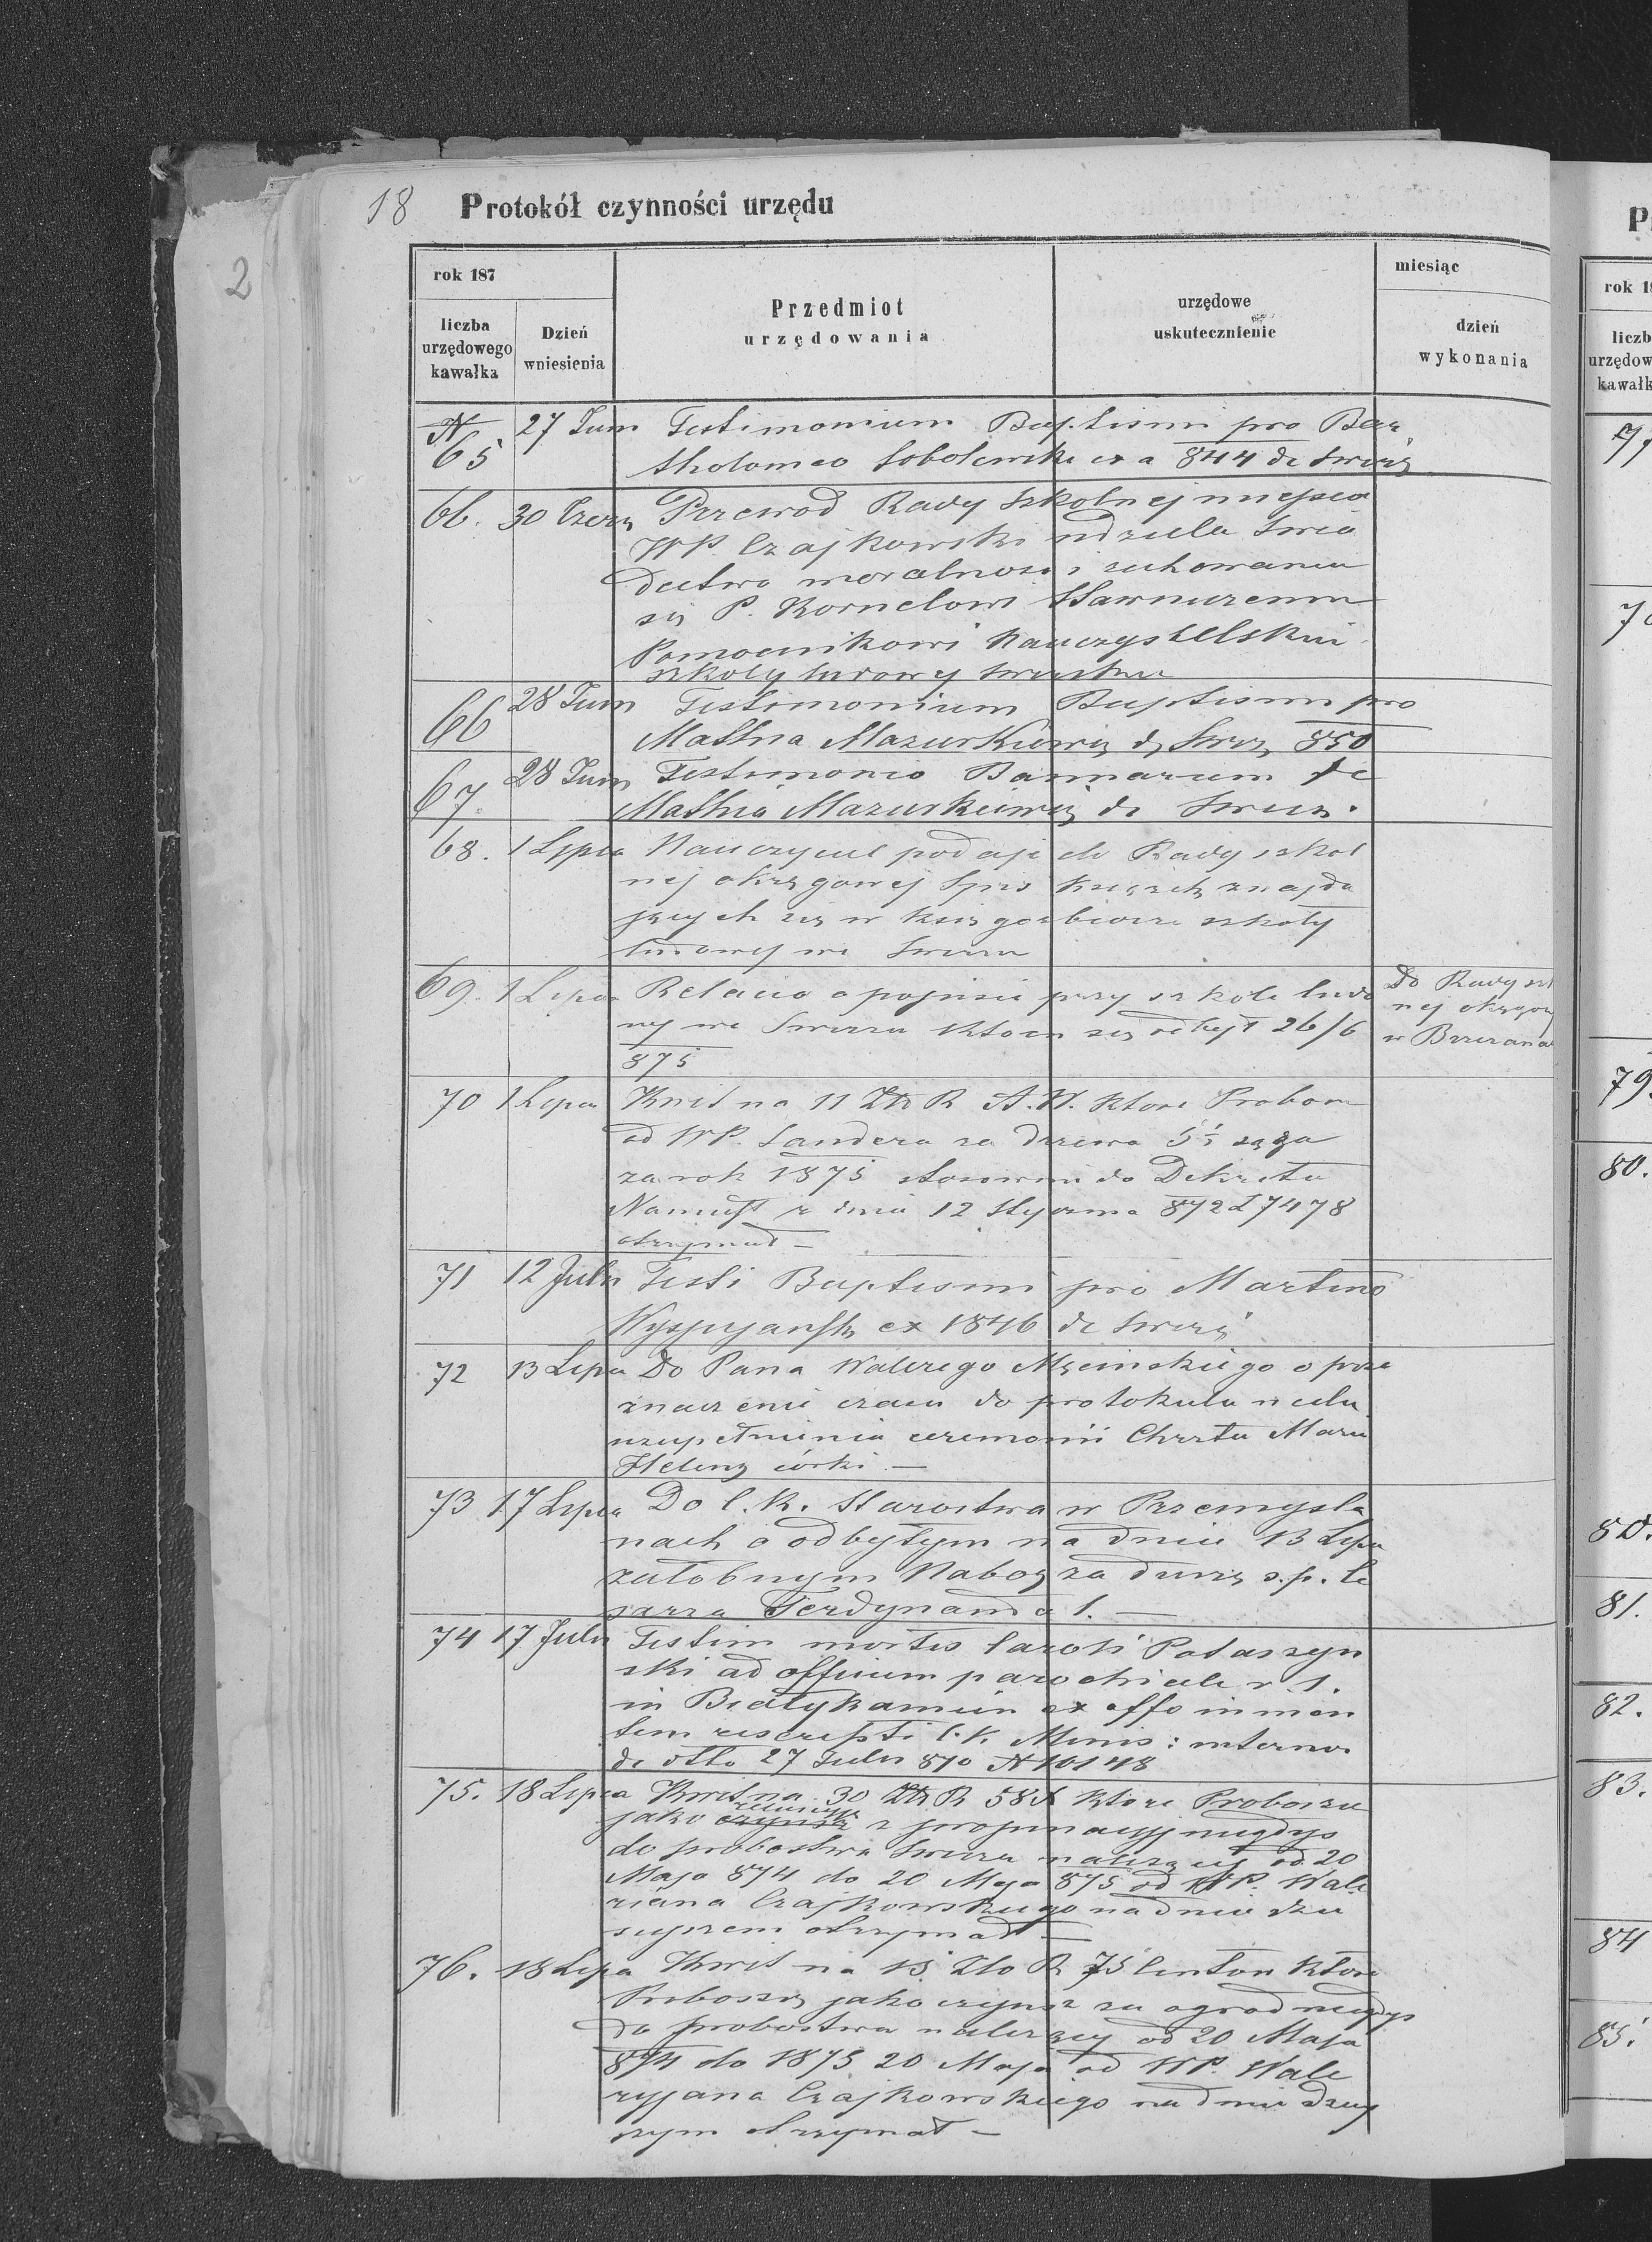 18 Protokół czynności urzędu
2
rok 187
liczba urzędowego kawałka
Dzień wniesienia
Przedmiot urzędowania
urzędowe uskutecznienie
miesiąc
dzień wykonania
N 65 27 Juni Testimonium Baptismi pro Bar
tholomeo Sobolewski ex a 844 de Swirz
66. 30 Czerw Przewod Rady Szkolnej miejsco
WP. Czajkowski udziela swia
dectwo moralnosci i zachowania
się P. Kornelowi
Pomocnikowi Nauczycielskiu
szkoly ludowy
66 28 Juni Testimonium Baptismi pro
Mathia Mazurkiewicz d Swirz 850
67. 28 Juni Testimonio Bannarum de
Mathia Mazurkiewicz de Swirz.
68. 1 Lipca Nauczyciel podaje do Rady szkol
nej okręgowej Spis książek znajdu
jących się w księgozbiorze szkoły
ludowej we Swirzu
69. 1 Lipca Relacia o popisie przy szkole ludo
wej we Swirzu który się odbył 26/6
875
Do Rady szk
nej okręgowej
w Brzezana
70 1 Lipca Kwit na 11 Złr A.W. które Probosz
od WP. Sandera za drzewo sąga
za rok 1875 stosownie do Dekretu
Namiest z dnia 12 Stycznia 872 L 7478
otrzymał –
71 12 Julii Testi Baptismi pro Martino
Wyspyansky ex 1846 de Swirz
72 13 Lipca Do Pana Walerego Męcinskiego o prze
znaczenie czasu do protokulu w celu
uzupełnienia ceremonii Chrztu Maryi
Heleny córki. –
73 17 Lipca Do C.K. Starostwa w Przemysla
nach o odbytym na dniu 13 Lipca
załobnym Naboz za duszę s.p. Ce
sarza Ferdynanda 1. –
74 17 Julii Testim mortis Caroli Potaszyn
ski ad officium parochiale r. l.
in Białykamien ex offo in men
tem rescripti C.K. Minis: interno
de dtto 27 Julii 870 N 10148
75. 18 Lipca Kwit na 30 Złr 58 które Proboszcz
jako z propinacyj niegdys
do probostwa Swirza należącej od 20
Maja 874 do 20 Maja 875 od WP. Wale
riana Czajkowskiego na dniu dzi
siejszem otrzymał –
76. 18 Lipca Kwit na 13 Zło R 75 Centow które
Proboszcz jako czynsz za ogrod niegdys
do probostwa należący od 20 Maja
874 do 1875 20 Maja od WP. Wale
ryjana Czajkowskiego na dniu dzisij
szym otrzymał –
P
rok 1
liczb
urzędow
kawałk
79
80.
80.
81.
82.
83.
84
85.